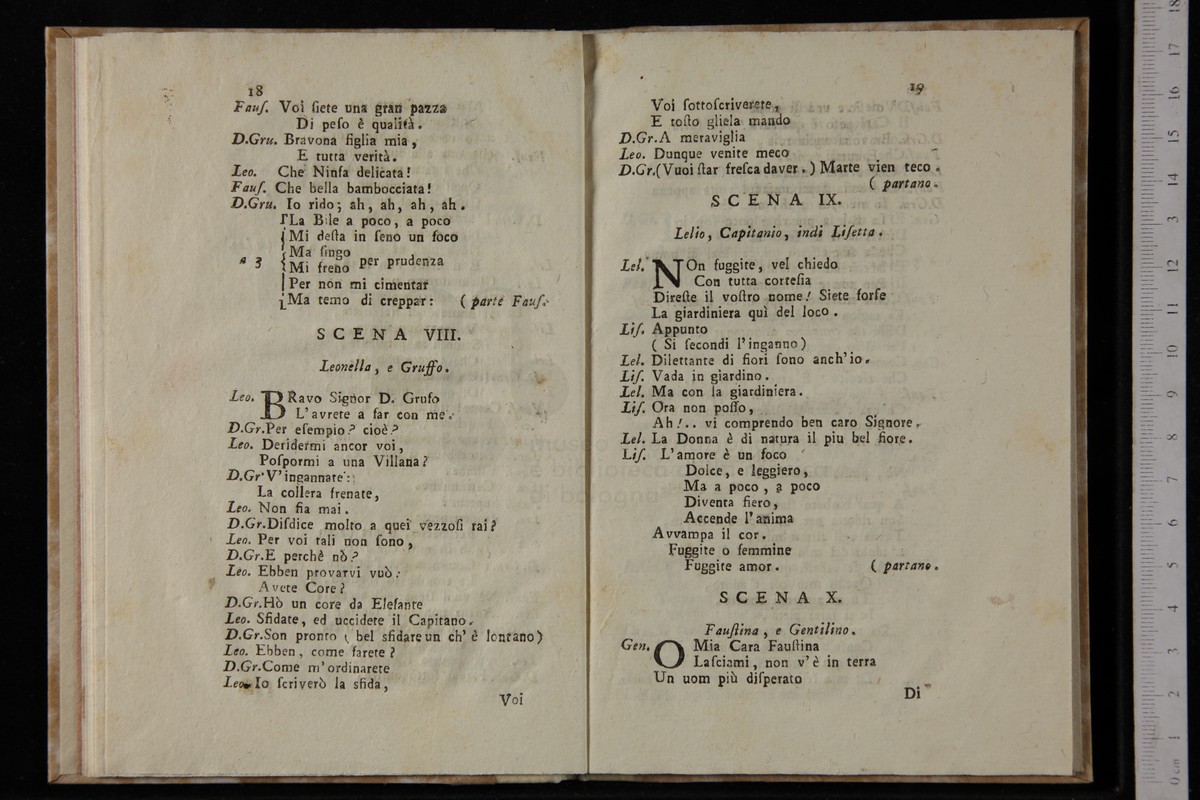 18
Fauſ. Voi ſiete una gran pazza
Di peſo è qualità.
D.Gru. Bravona figlia mia,
E tutta verità.
Leo. Che Ninfa delicata!
Fauſ. Che bella bambocciata!
D.Gru. Io rido; ah, ah, ah, ah.
La Bile a poco, a poco
Mi deſta in ſeno un foco
a 3 Ma fingo
Mi freno per prudenza
Per non mi cimentar
Ma temo di creppar: ( parte Fauſ.
SCENA VIII.
Leonella, e Gruffo.
Leo. BRavo Signor D. Grufo
L'avrete a far con me.
D.Gr.Per eſempio? cioè?
Leo. Deridermi ancor voi,
Poſpormi a una Villana?
D.Gr.V'ingannate:
La collera frenate,
Leo. Non fia mai.
D.Gr.Diſdice molto a quei vezzoſi rai?
Leo. Per voi tali non ſono,
D.Gr.E perchè nò?
Leo. Ebben provarvi vuò:
Avete Core?
D.Gr.Hò un core da Elefante
Leo. Sfidate, ed uccidere il Capitano.
D.Gr.Son pronto ( bel sfidare un ch' è lontano)
Leo. Ebben, come farete?
D.Gr.Come m'ordinarete
Leo. Io ſcriverò la sfida,
Voi
19
Voi ſottoſcriverete,
E toſto gliela mando
D.Gr.A meraviglia
Leo. Dunque venite meco
D.Gr.(Vuoi ſtar freſca daver.) Marte vien teco.
( partano.
SCENA IX.
Lelio, Capitanio, indi Liſetta.
Lel. NOn fuggite, vel chiedo
Con tutta corteſia
Direſte il voſtro nome! Siete forſe
La giardiniera quì del loco.
Liſ. Appunto
( Si ſecondi l'inganno)
Lel. Dilettante di fiori ſono anch'io.
Liſ. Vada in giardino.
Lel. Ma con la giardiniera.
Liſ. Ora non poſſo,
Ah!.. vi comprendo ben caro Signore.
Lel. La Donna è di natura il piu bel fiore.
Liſ. L'amore è un foco
Dolce, e leggiero,
Ma a poco, a poco
Diventa fiero,
Accende l'anima
Avvampa il cor.
Fuggite o femmine
Fuggite amor. ( partano.
SCENA X.
Fauſtina, e Gentilino.
Gen. O Mia Cara Fauſtina
Laſciami, non v'è in terra
Un uom più diſperato
Di